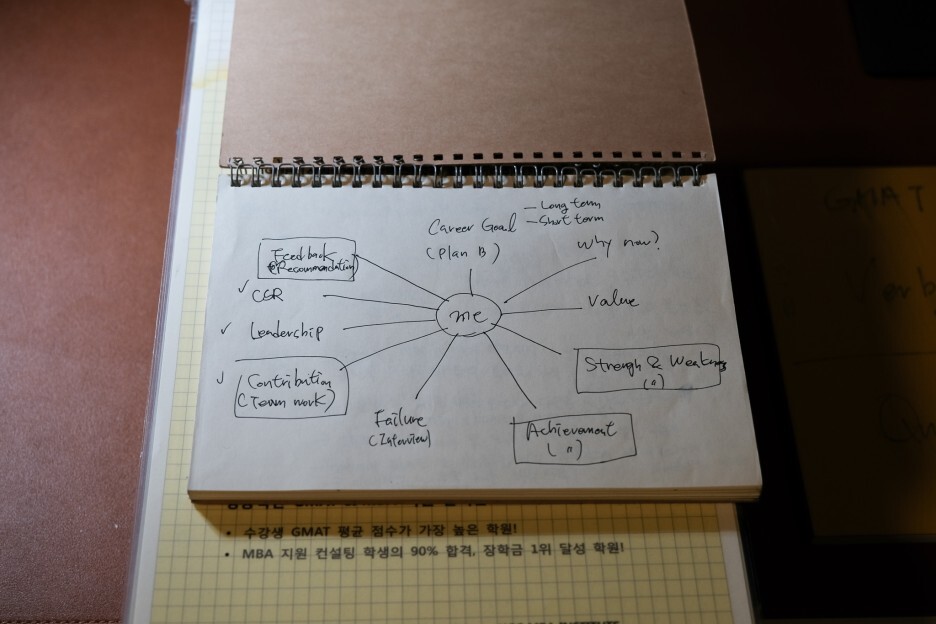 — Long term
Career Goal — Short term
(Plan B)
Why now?
Feedback
(Recommendation)
✓ CSR
me
Value
✓ Leadership
Strength & Weakness
(〃)
✓ Contribution
(Team work)
Failure
(Interview)
Achievement
(〃)
• 수강생 GMAT 평균 점수가 가장 높은 학원!
• MBA 지원 컨설팅 학생의 90% 합격, 장학금 1위 달성 학원!
GMAT
Verb